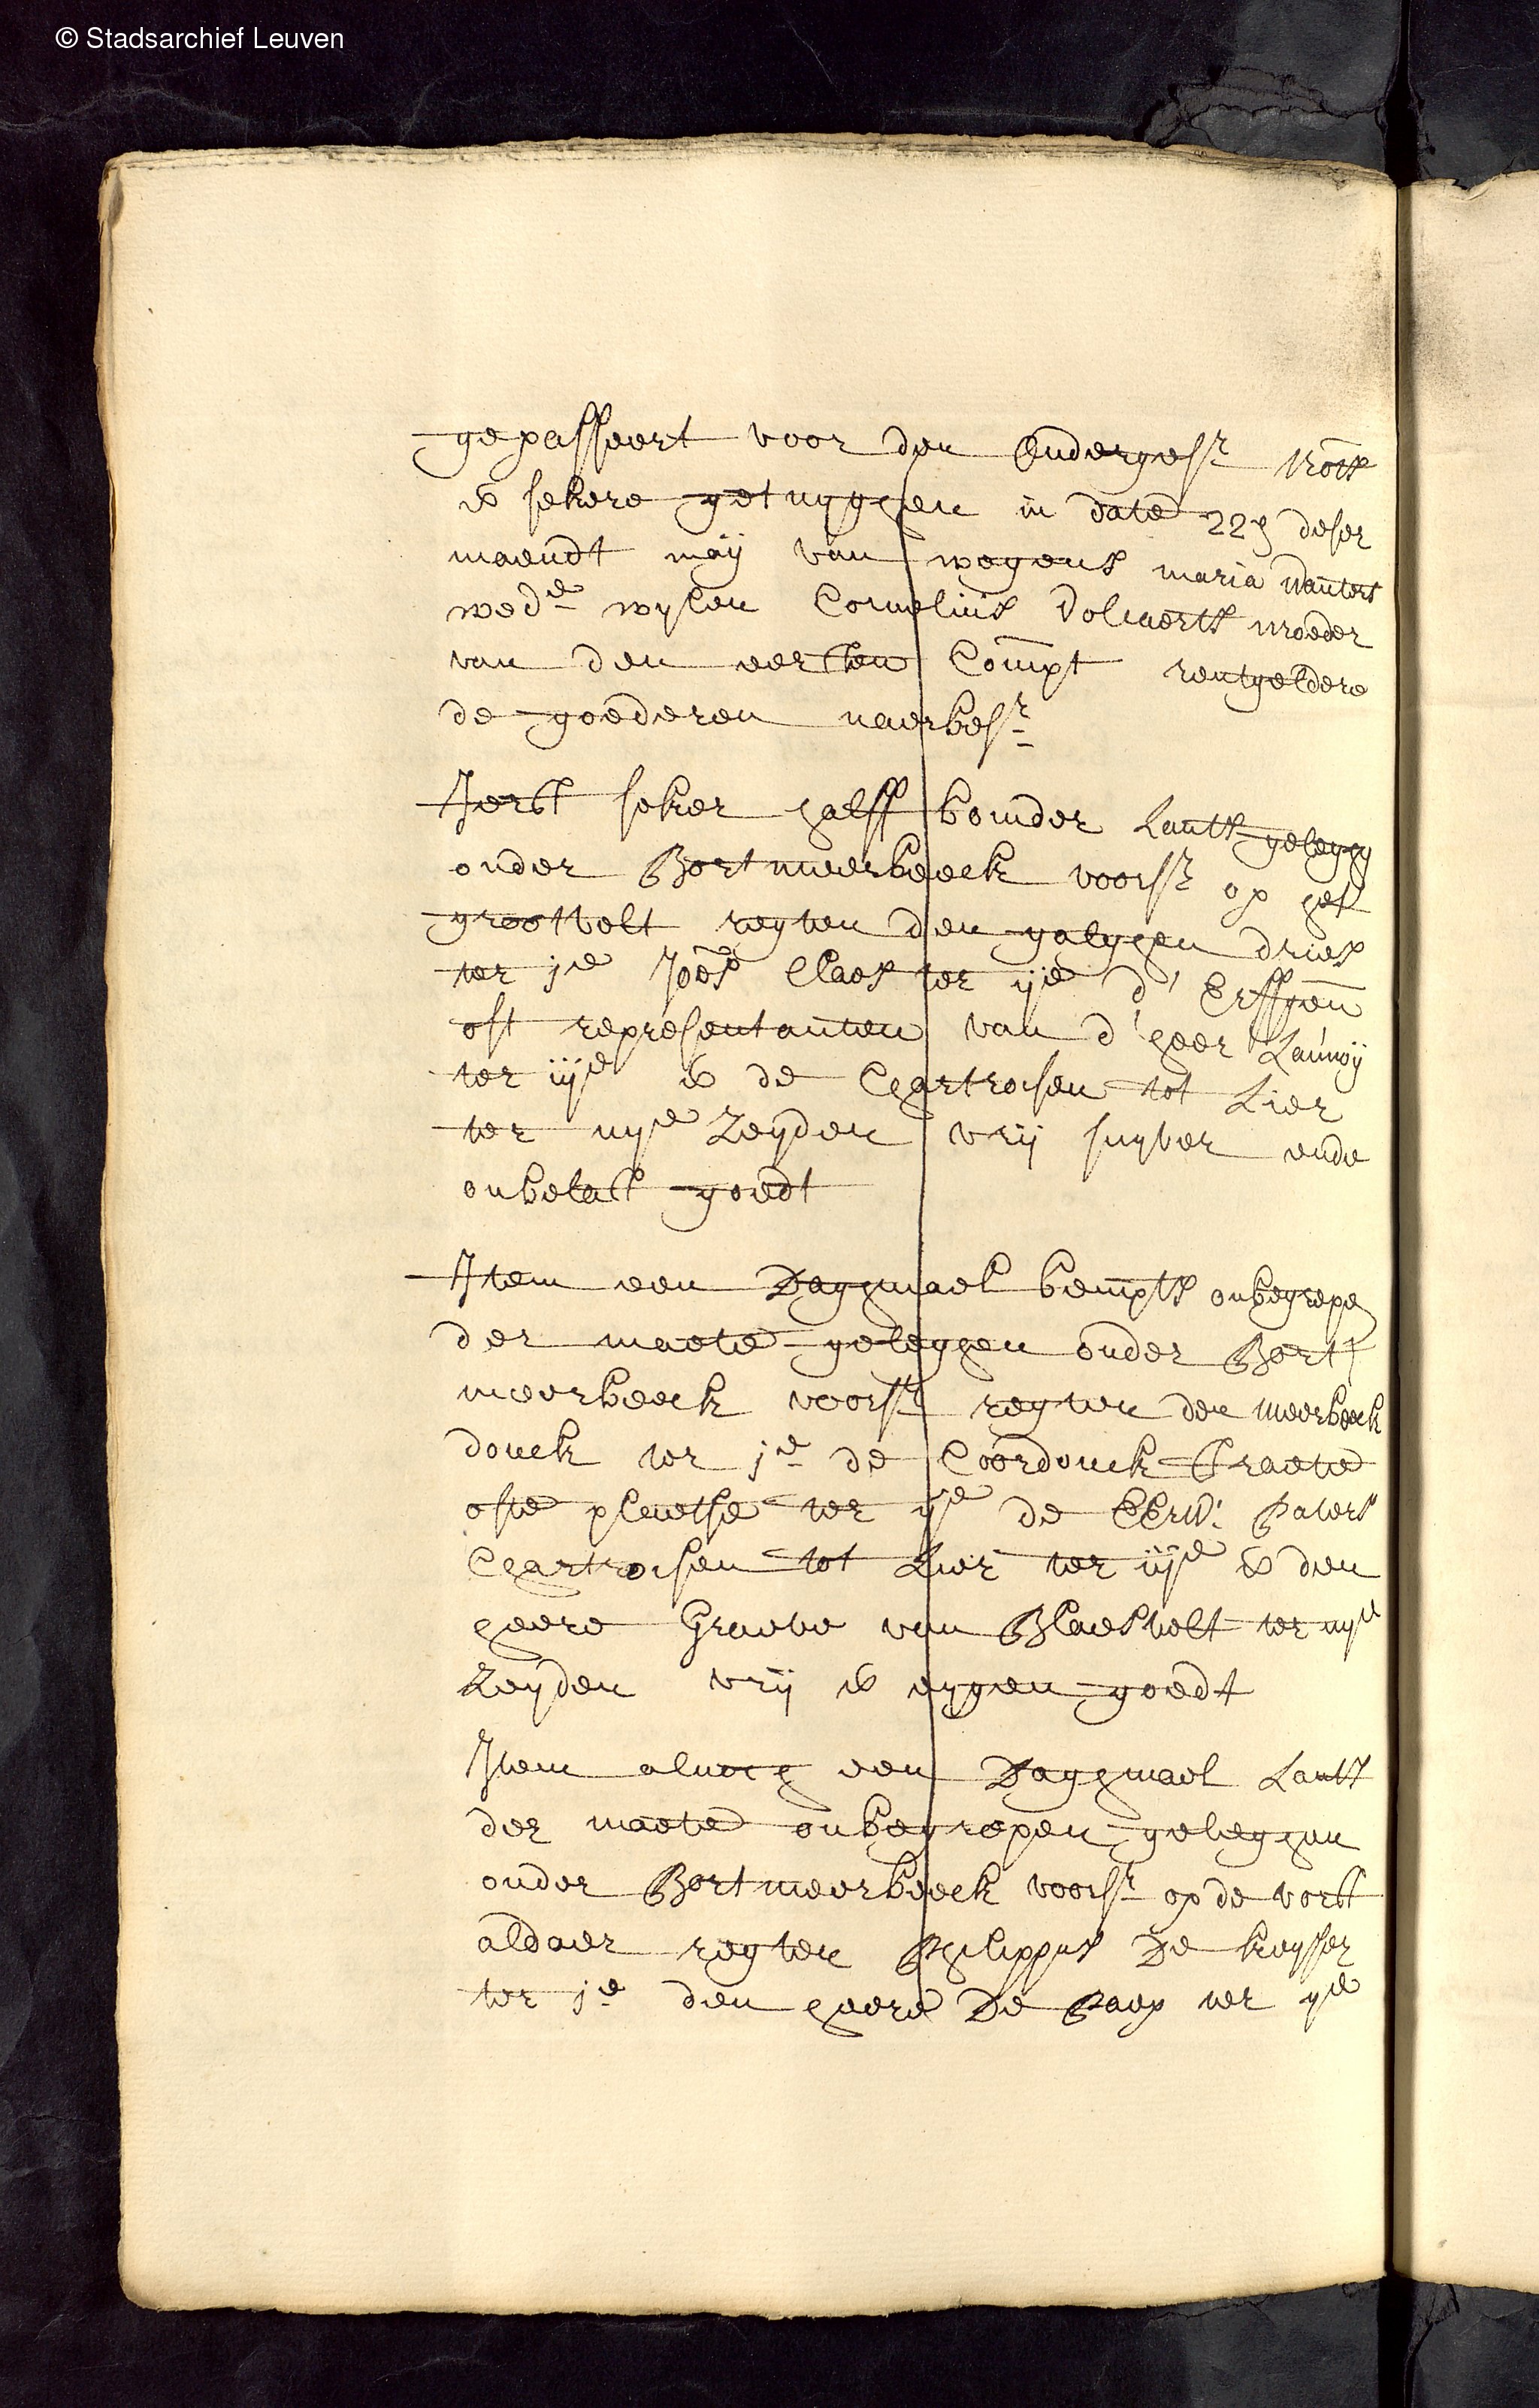 © Stadsarchief Leuven
gepasseert voor den ondergesr nots
& sekere getuyghen in date 22e deser
maendt maij van wegens maria Wauters
wede wylen Cornelius Volcaerts moeder
van den eersten Compt rentgeldere
de goederen naerbesr
Ierst seker halff bonder Lants geleghen
onder Bortmeerbeeck voorsr op het
grootvelt regten den galghen dries
ter je Joes Claes ter ije d' Erffgen
oft representanten van d'heer Launoij
ter iije & de Chartroisen tot Lier
ter iiije Zeyden vrij suyver ende
onbelast goedt
Item een Daghmael bempts onbegrepe
der maete geleghen onder Bort
meerbeeck voorsr regten den meerbeeck
donck ter je de Coordonck straete
ofte plaetse ter ije de EErw: Paters
Chartroisen tot Lier ter iije & den
heere Graeve van Blaesvelt ter iiije
Zeyden vrij & eygen goedt
Item alnoch een Daghmael Lants
der maete onbegrepen geleghen
onder Bortmeerbeeck voorsr op de vorst
aldaer regten Philippus De keyser
ter je den heere De Paep ter ije